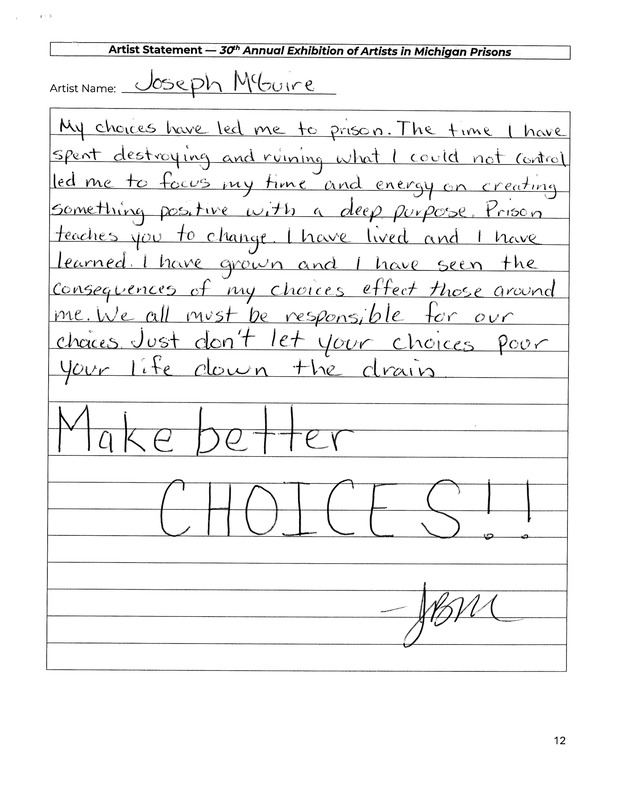 Artist Statement — 30th Annual Exhibition of Artists in Michigan Prisons
Artist Name: Joseph McGuire
My choices have led me to prison. The time I have
spent destroying and ruining what I could not control
led me to focus my time and energy on creating
something positive with a deep purpose. Prison
teaches you to change. I have lived and I have
learned. I have grown and I have seen the
consequences of my choices effect those around
me. We all must be responsible for our
choices. Just don't let your choices pour
your life down the drain
Make better
CHOICES!!
- JBM
12